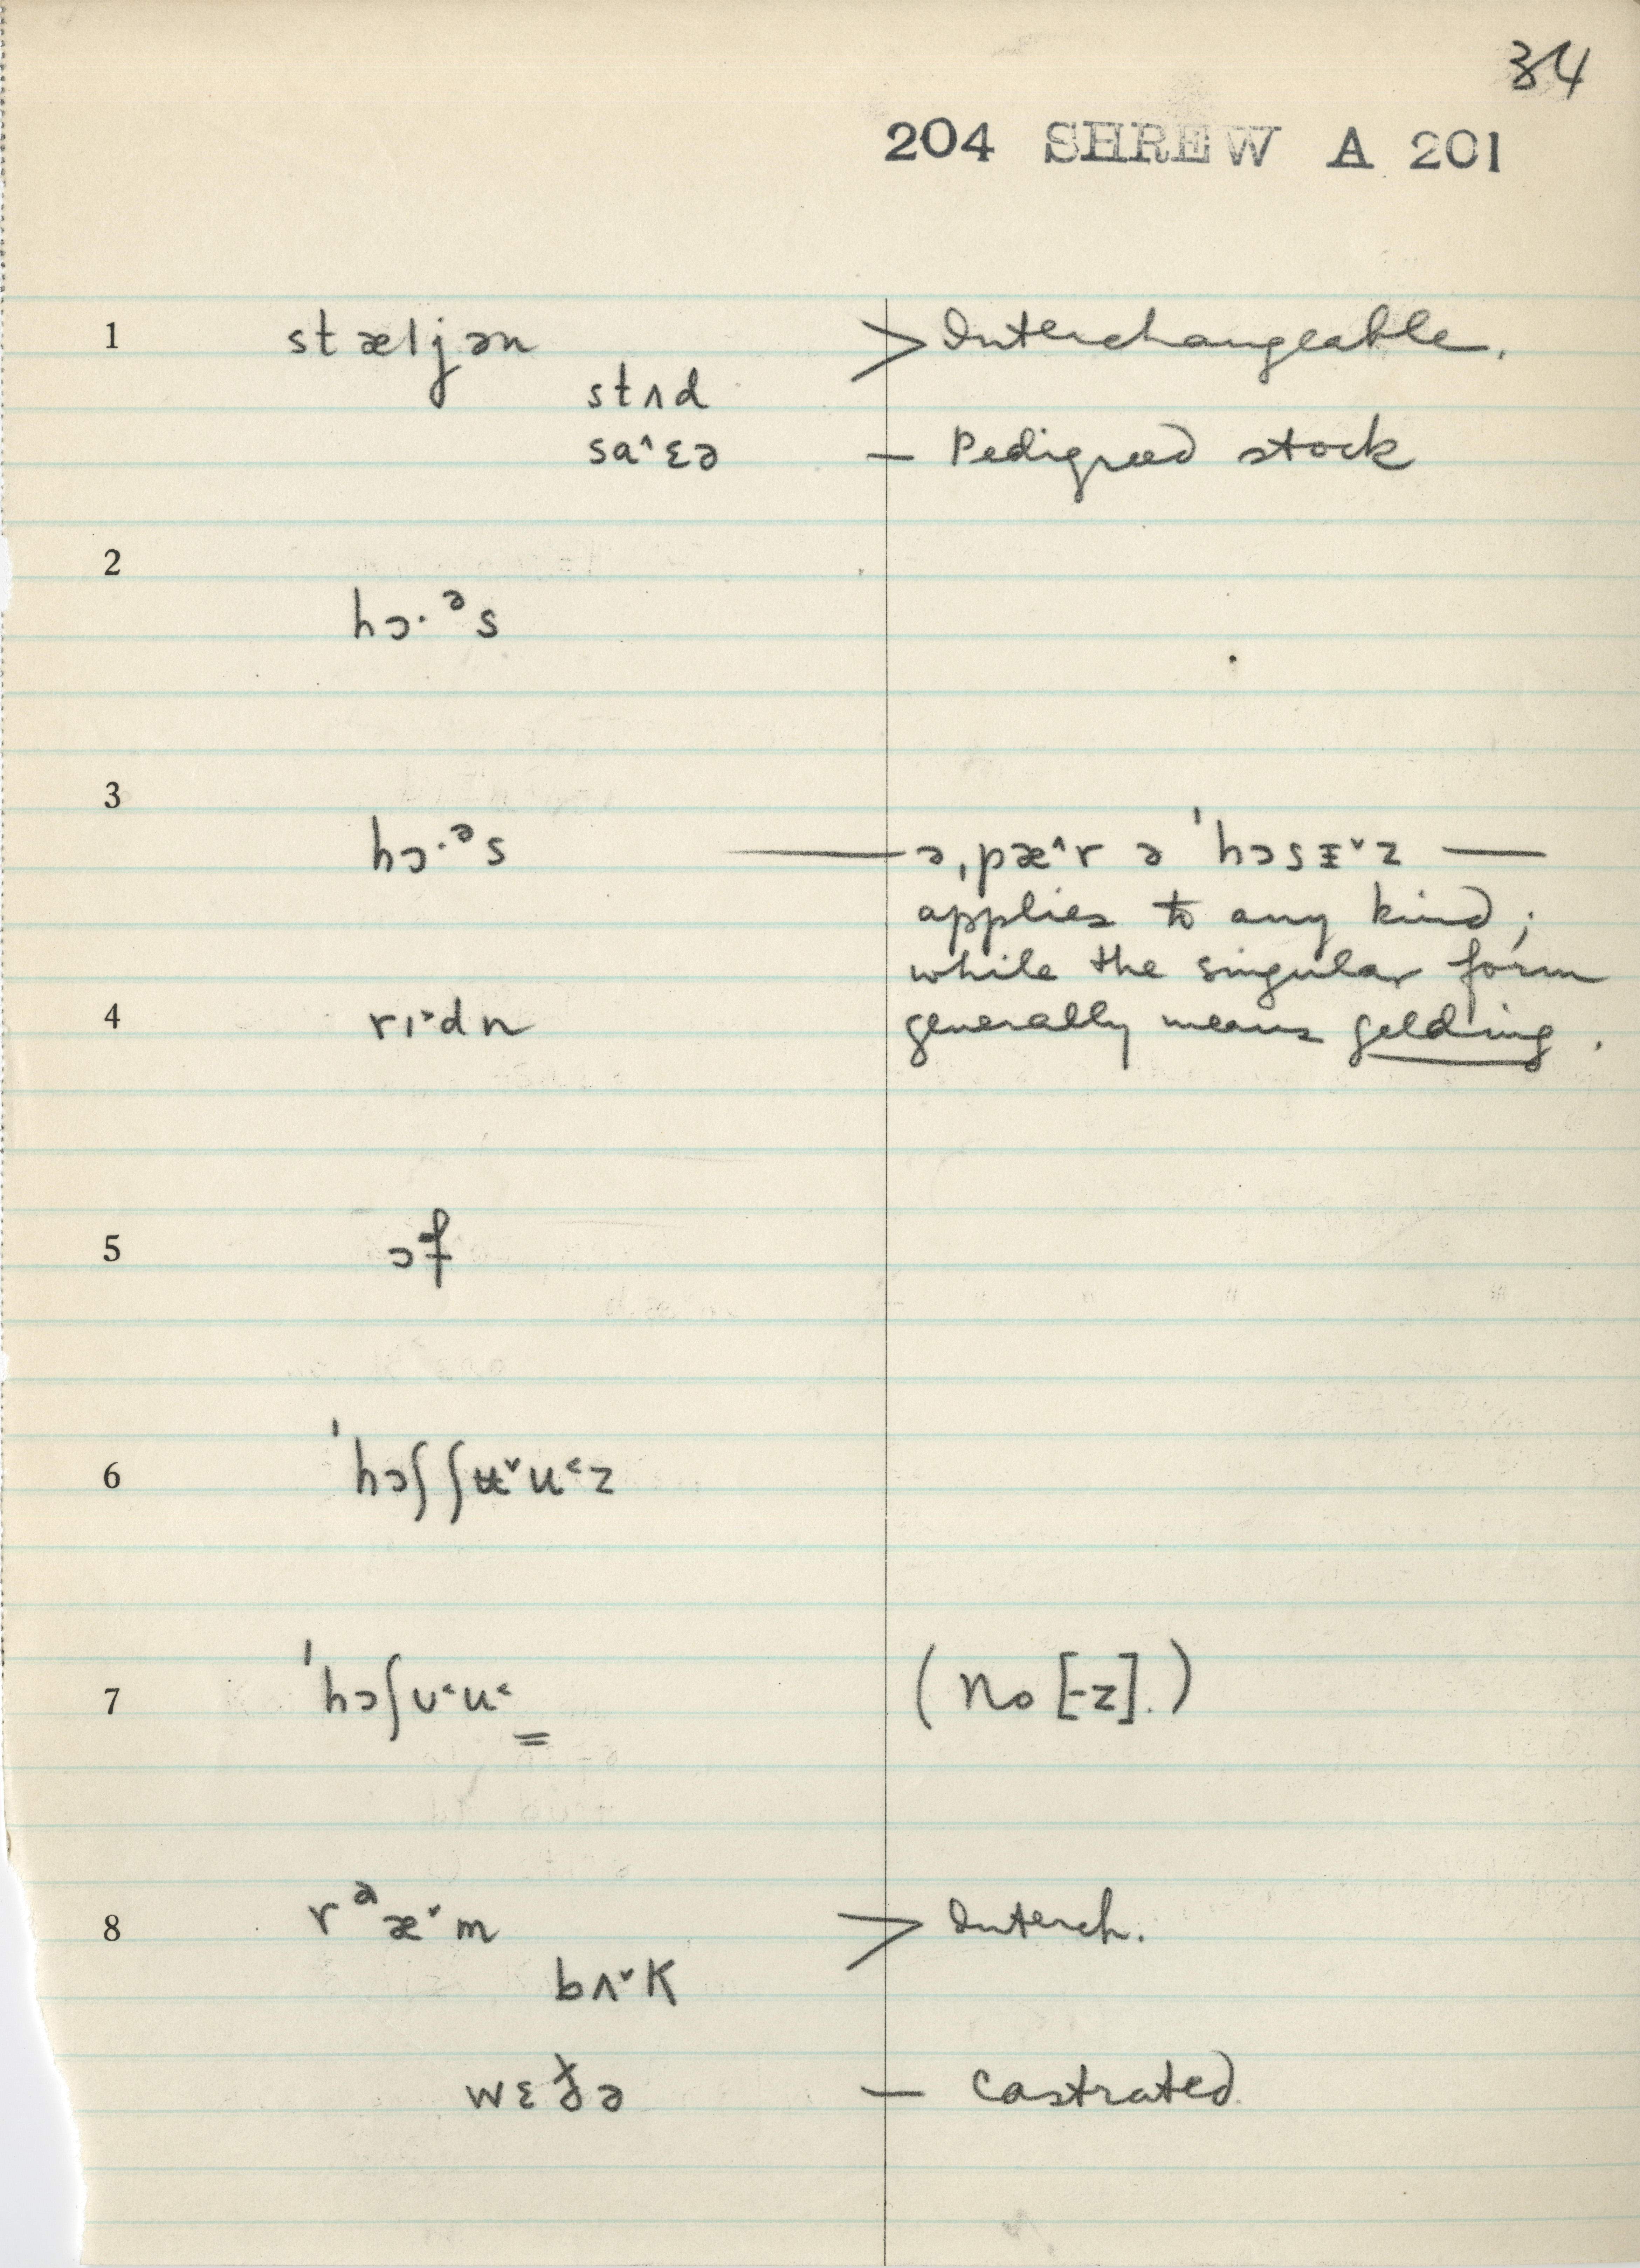 34
204 SHREW A 201
1 stæljən > Interchangeable.
stʌd
sa˄ɛə — Pedigreed stock
2
hɔ·ᵊs
3
hɔ·ᵊs — ə ˌpæ˄r ə ˈhɔsɪ˅z —
applies to any kind;
while the singular form
4 rɪ˃dn generally means gelding.
5 ɔf
6 ˈhɔʃʃʉ˅u˂z
7 ˈhɔʃʊ˂u˂ (No [-z].)
8 rᵃæ˅m > Interch.
bʌ˅k
wɛðə — Castrated